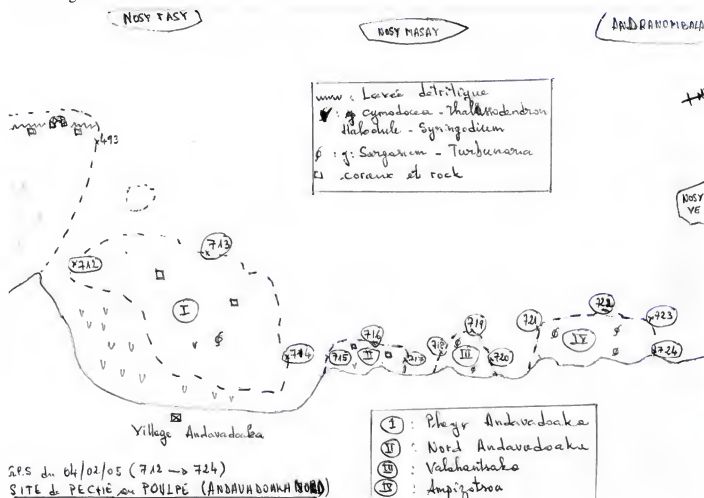 NOSY FASY
NOSY MASAY
ANDRANOMBALA
: Levée détritique
: g cymodocea - Thalassodendron
Halodule - Syringodium
: g: Sargassum - Turbunaria
coraux et rock
493
NOSY
VE
712
713
I
714
715
716
II
717
718
719
III
720
721
722
IV
723
724
Village Andavadoaka
G.P.S du 04/02/05 (712 → 724)
SITE de PECHE au POULPE (ANDAVADOAKA NORD)
I : Phare Andavadoaka
II : Nord Andavadoaka
III : Valohantsako
IV : Ampizotsoa